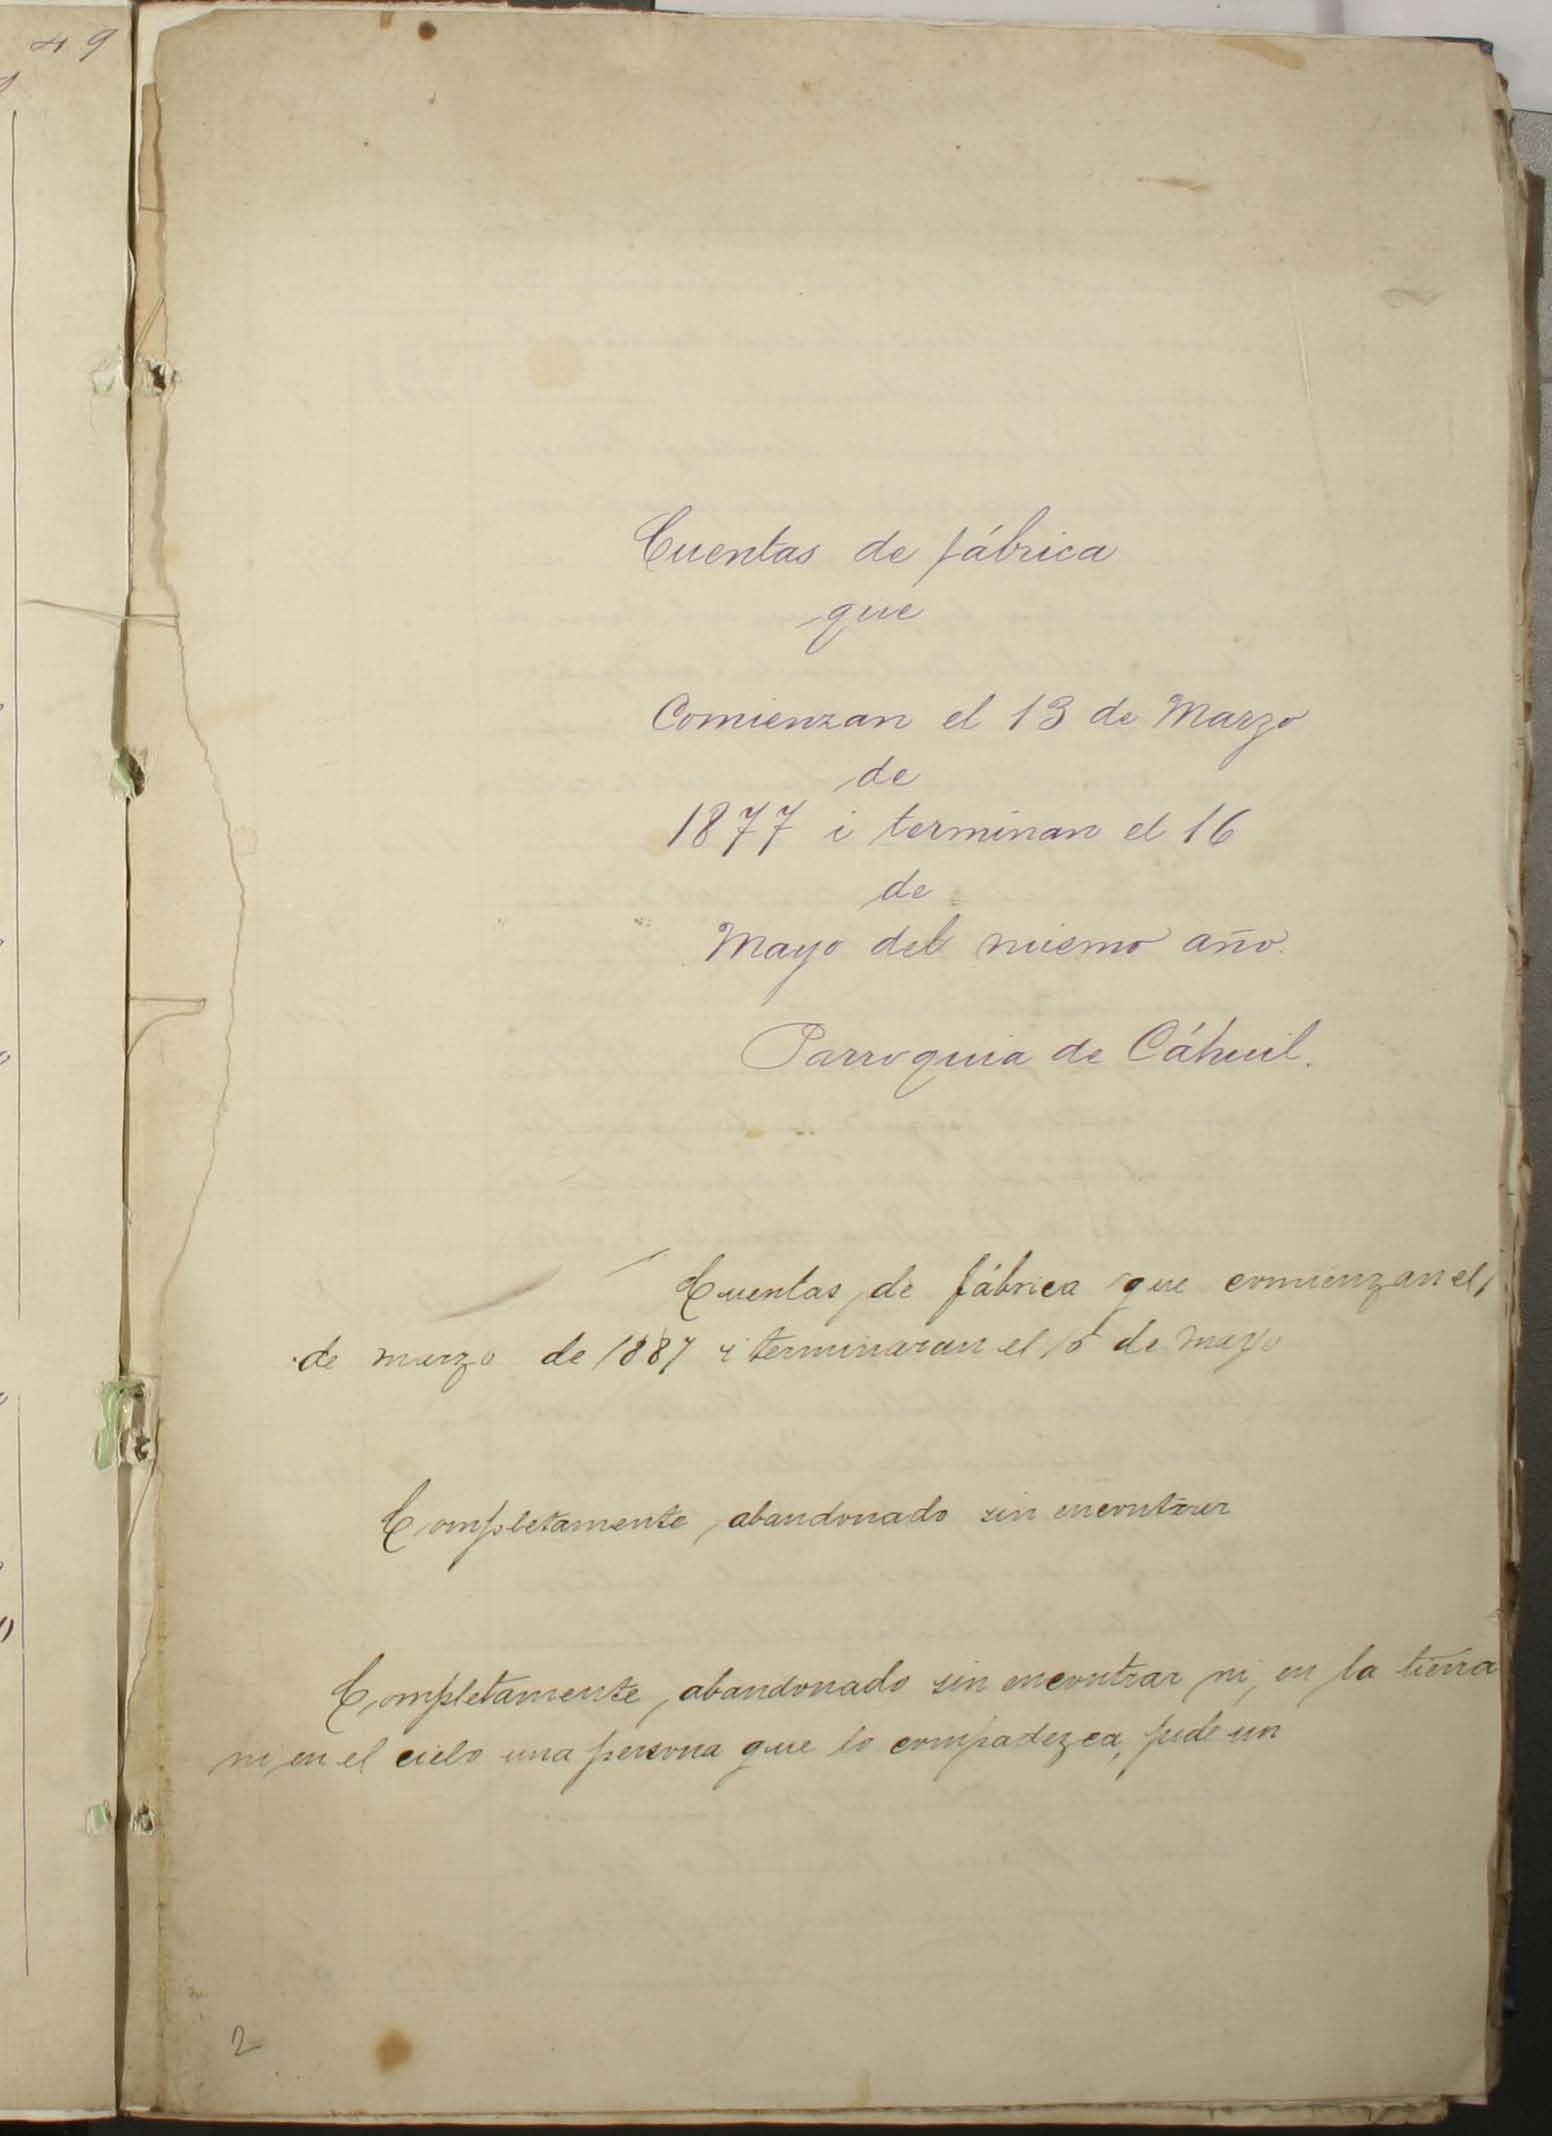 49
Cuentas de fábrica
que
Comienzan el 13 de Marzo
de
1877 i terminan el 16
de
Mayo del mismo año.
Parroquia de Cáhuil.
Cuentas de fábrica que comienzan el
de marzo de 1887 i terminaran el 15 de mayo
Completamente abandonado sin encontrar
Completamente, abandonado sin encontrar ni en la tierra
ni en el cielo una persona que lo compadezca, pide un
2